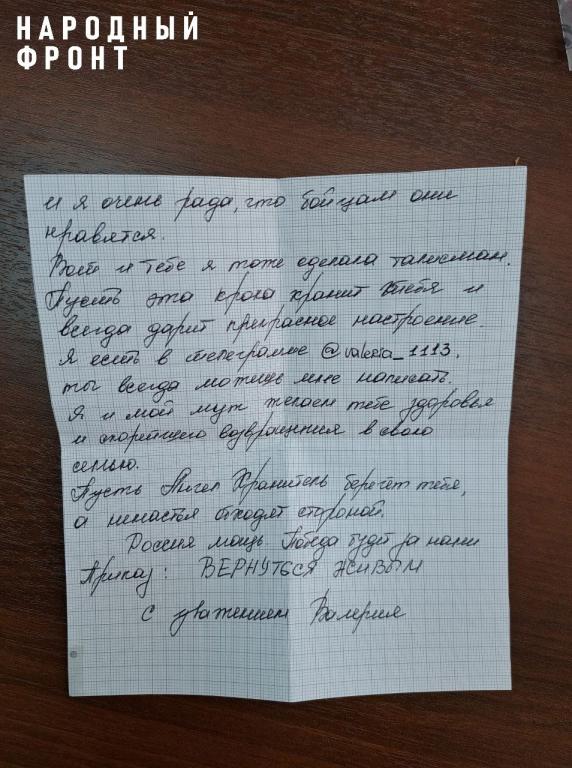 НАРОДНЫЙ
ФРОНТ
и я очень рада, что бойцам они
нравятся.
Вот и тебе я тоже сделала талисман.
Пусть эта кроха хранит тебя и
всегда дарит прекрасное настроение.
Я есть в телеграмме @valeria_1113,
ты всегда можешь мне написать.
Я и мой муж желаем тебе здоровья
и скорейшего возвращения в свою
семью.
Пусть Ангел Хранитель бережёт тебя,
а ненастья отходят стороной.
Россия мощь. Победа будет за нами
Приказ: ВЕРНУТЬСЯ ЖИВЫМ
С уважением Валерия